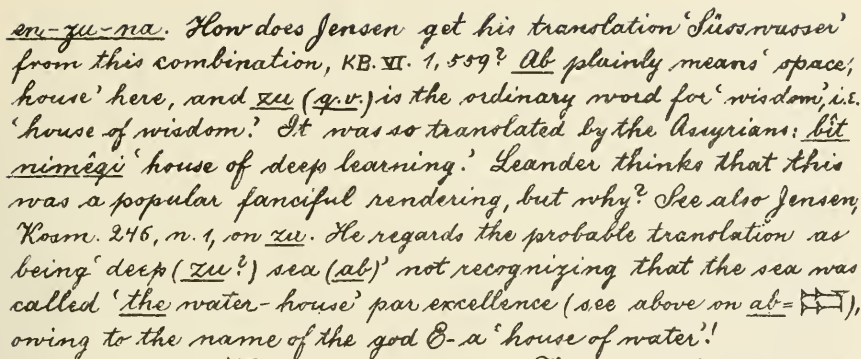 en-zu-na. How does Jensen get his translation 'Süsswasser'
from this combination, KB. VI. 1, 559? Ab plainly means 'space,
house' here, and zu (q.v.) is the ordinary word for 'wisdom', i.e.
'house of wisdom.' It was so translated by the Assyrians: bît
nimêqi 'house of deep learning.' Leander thinks that this
was a popular fanciful rendering, but why? See also Jensen,
Kosm. 246, n. 1, on zu. He regards the probable translation as
being 'deep (zu?) sea (ab)' not recognizing that the sea was
called 'the water-house' par excellence (see above on ab = ),
owing to the name of the god E-a 'house of water'!